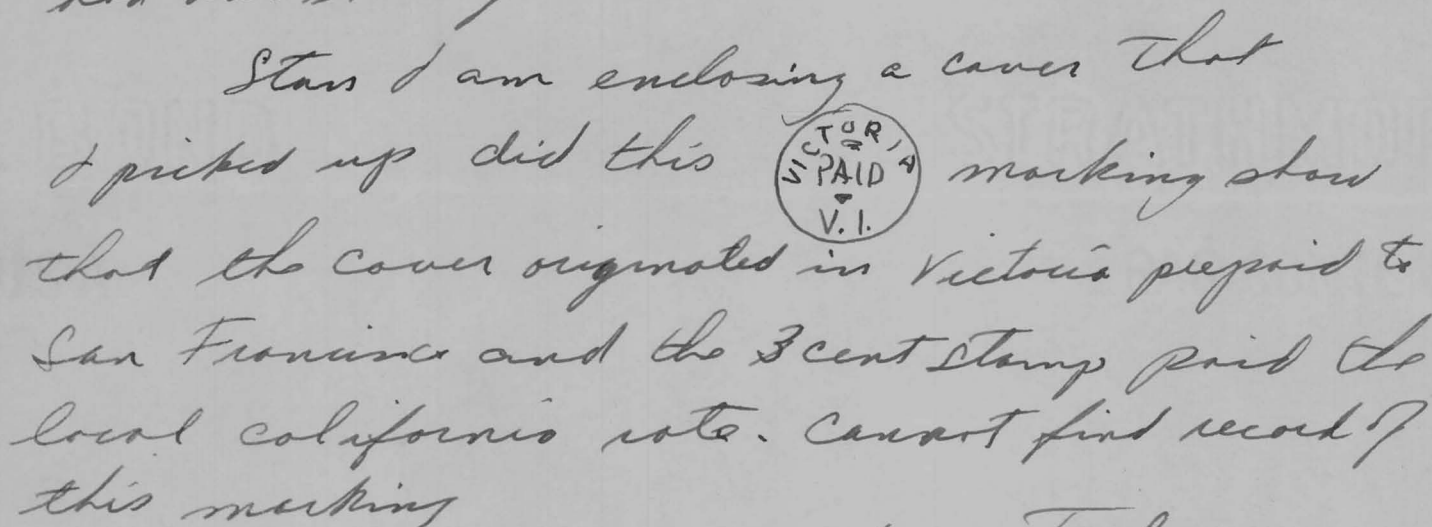 Stan I am enclosing a cover that
I picked up did this VICTORIA PAID V.I. marking show
that the cover originated in Victoria prepaid to
San Francisco and the 3 cent stamp paid the
local california rate. Cannot find record of
this marking